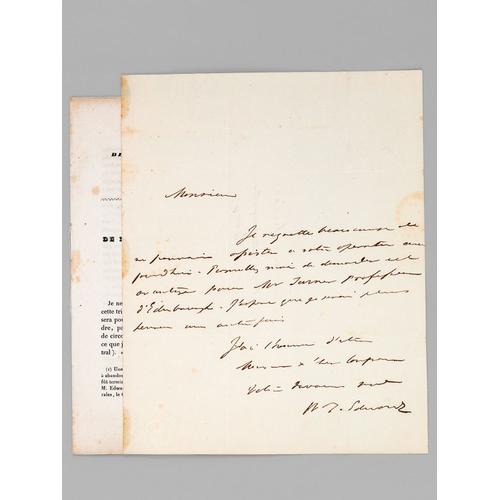 DE
Je ne
cette tri
sera pou
dre, pa
de circo
ce que j
tral). «
(1) Une
à abandon
fût termin
M. Edwa
rales, le
Monsieur
Je regrette beaucoup de
ne pouvoir assister à votre opération aujourd'hui
Permettez moi de demander cet
avantage pour Mr Turner Professeur
d'Edinburgh. J'espère que je serai plus
heureux une autre fois
J'ai l'honneur d'être
Monsieur
Votre dévoué
W. F. Edwards